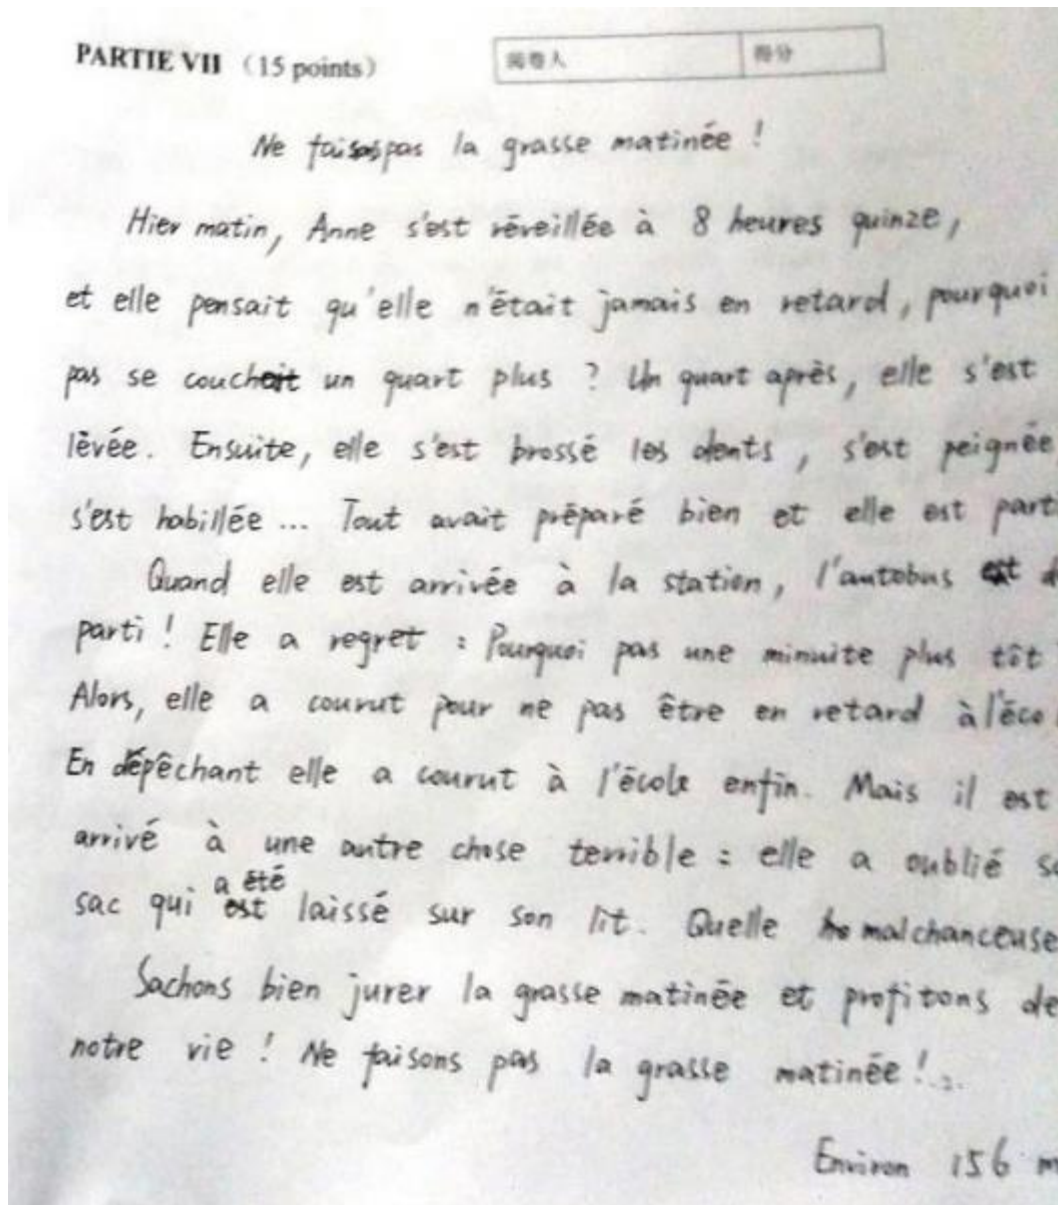 PARTIE VII (15 points) 阅卷人 得分
Ne faisons pas la grasse matinée !
Hier matin, Anne s'est réveillée à 8 heures quinze,
et elle pensait qu'elle n'était jamais en retard, pourquoi
pas se couchait un quart plus ? Un quart après, elle s'est
lévée. Ensuite, elle s'est brossé les dents, s'est peignée
s'est habillée... Tout avait préparé bien et elle est part
Quand elle est arrivée à la station, l'autobus est d
parti ! Elle a regret : Pourquoi pas une minuite plus tôt
Alors, elle a courut pour ne pas être en retard à l'éco
En dépêchant elle a courut à l'école enfin. Mais il est
arrivé à une autre chose terrible : elle a oublié s
sac qui a été laissé sur son lit. Quelle malchanceuse
Sachons bien jurer la grasse matinée et profitons de
notre vie ! Ne faisons pas la grasse matinée !
Environ 156 m